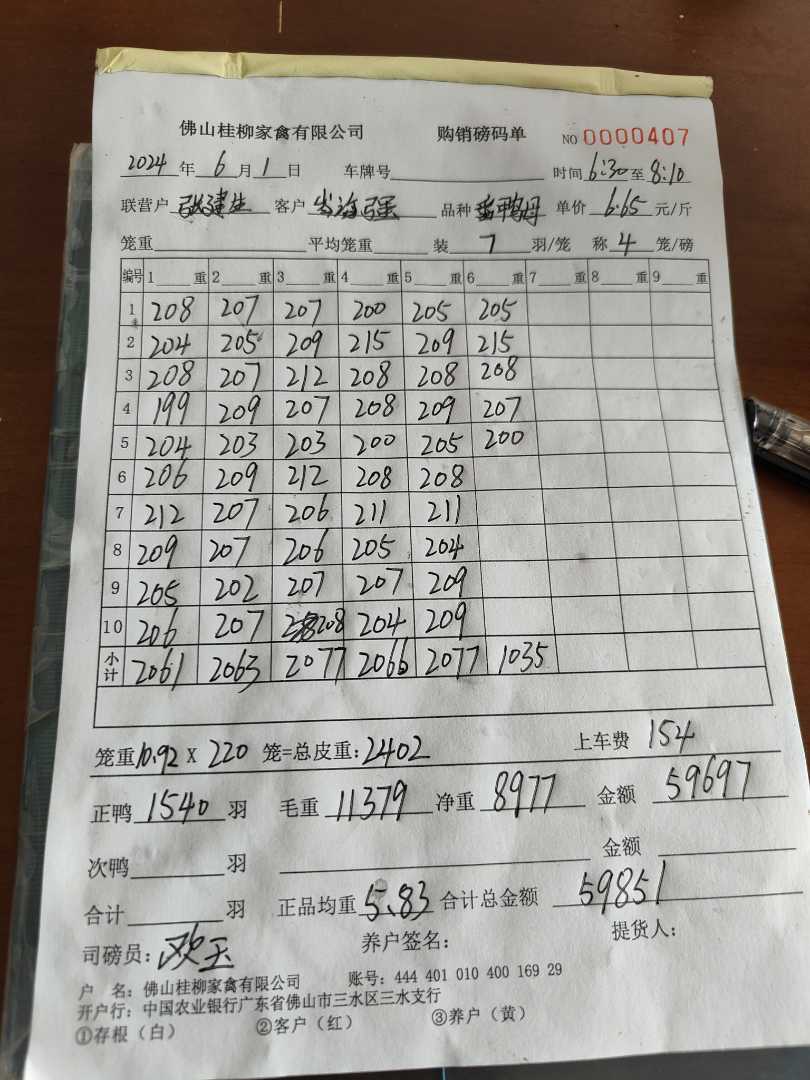 佛山桂柳家禽有限公司 购销磅码单 NO 0000407
2024年6月1日 车牌号 时间6:30至8:10
联营户 张建生 客户 强 品种 鸭 单价 6.65 元/斤
笼重 平均笼重 装 7 羽/笼 称 4 笼/磅
编号 1 重 2 重 3 重 4 重 5 重 6 重 7 重 8 重 9 重
1 208 207 207 200 205 205
2 204 205 209 215 209 215
3 208 207 212 208 208 208
4 199 209 207 208 209 207
5 204 203 203 200 205 200
6 206 209 212 208 208
7 212 207 206 211 211
8 209 207 206 205 204
9 205 202 207 207 209
10 206 207 208 204 209
小计 2061 2063 2077 2066 2077 1035
笼重10.92 X 220 笼=总皮重:2402 上车费 154
正鸭 1540 羽 毛重 11379 净重 8977 金额 59697
次鸭 羽 金额
合计 羽 正品均重 5.83 合计总金额 59851
司磅员: 欧玉 养户签名: 提货人:
户 名: 佛山桂柳家禽有限公司 账号: 444 401 010 400 169 29
开户行: 中国农业银行广东省佛山市三水区三水支行
①存根(白) ②客户(红) ③养户(黄)